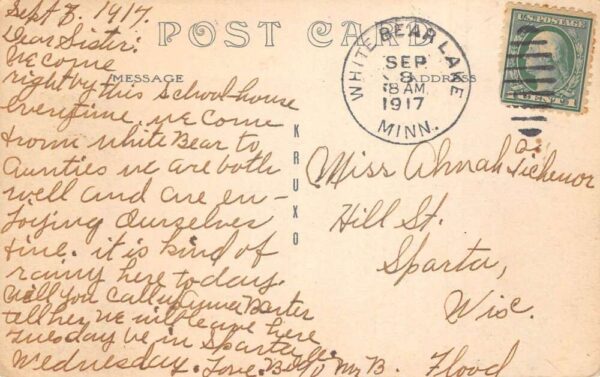 Sept 8. 1917.
Dear Sister:
We come
right by this Schoolhouse
everytime we come
from White Bear to
Aunties we are both
well and are en-
joying Ourselves
fine. it is kind of
rainy here today.
Will you call up Barter
tell her we will leave here
Tuesday be in Sparta
Wednesday. Love.
POST CARD
MESSAGE
ADDRESS
KRUXO
WHITE BEAR LAKE
SEP
8
8 AM
1917
MINN.
U.S. POSTAGE
1 CENT 1
Miss Almah Tichenor
Hill St.
Sparta,
Wisc.
% Mr B. Flood